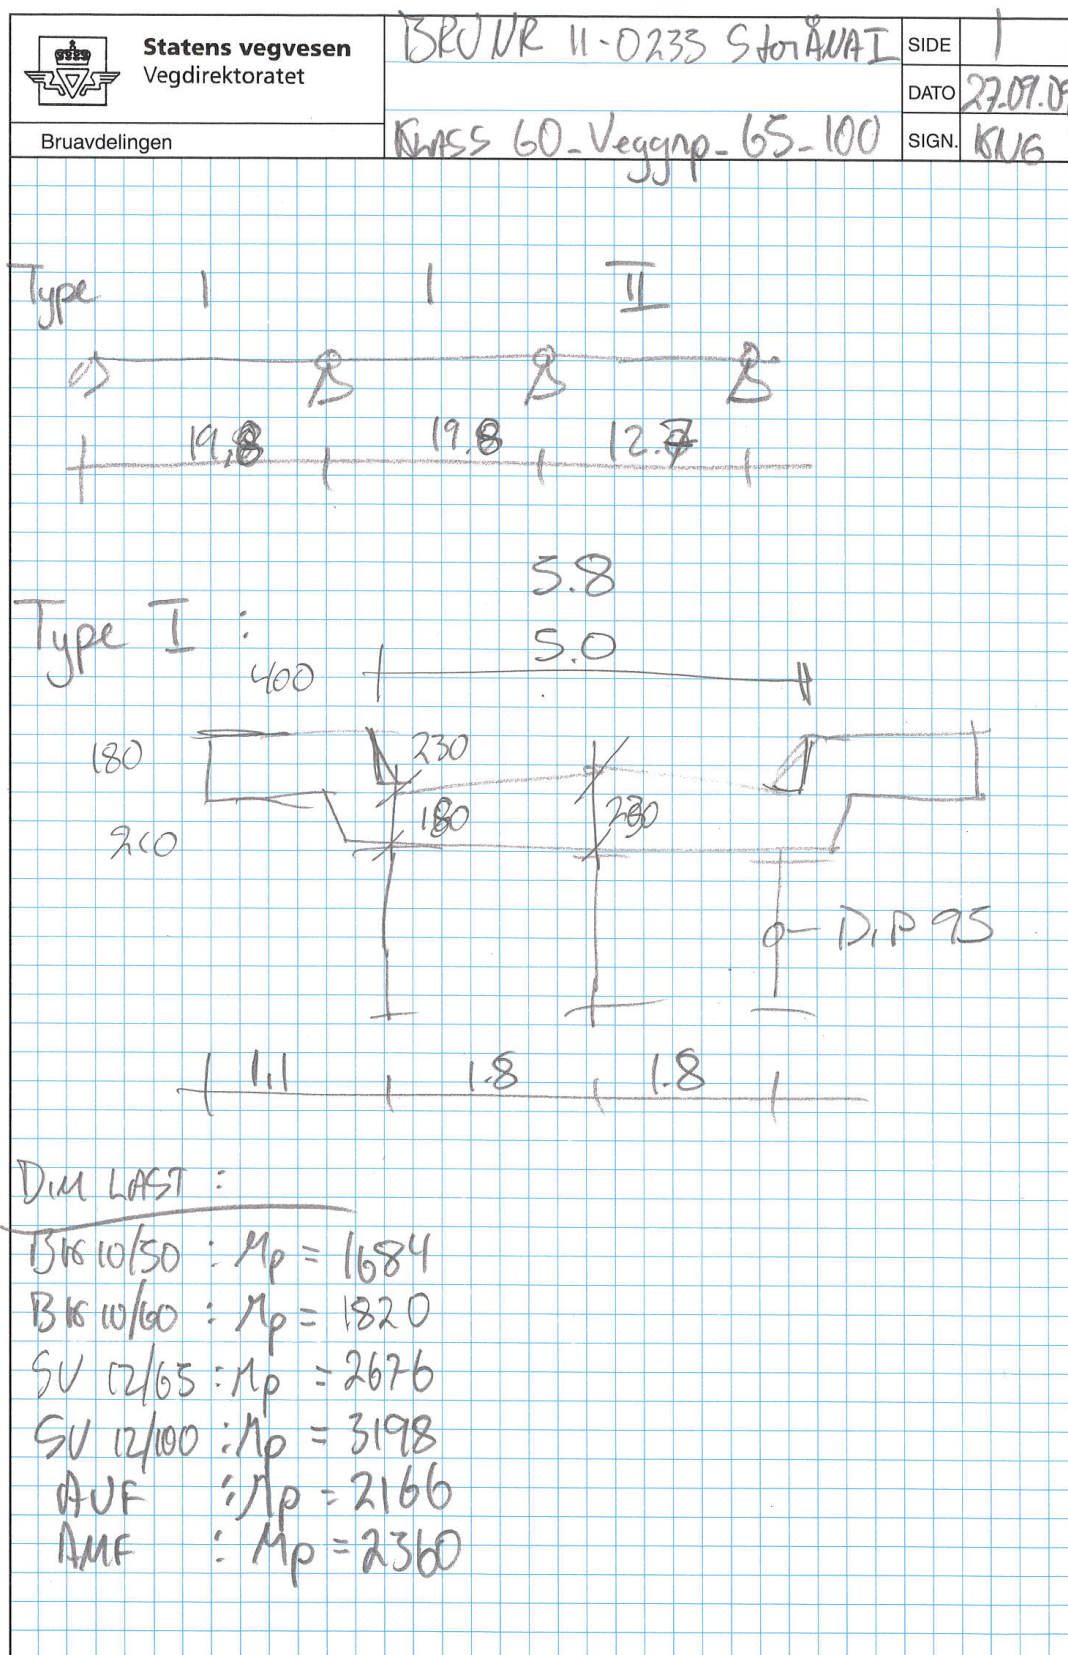 Statens vegvesen
Vegdirektoratet
Bruavdelingen
BRU NR 11-0233 StorÅNA I
Klass 60-Veggrp-65-100
SIDE 1
DATO 27.09.09
SIGN. KNG
Type I I II
19.8 19.8 12.7
5.8
Type I :
5.0
400
180 230
180 230
210
D.P 95
1.1 1.8 1.8
DIM LAST :
BK 10/50 : Mp = 1684
BK 10/60 : Mp = 1820
SV 12/65 : Mp = 2676
SV 12/100 : Mp = 3198
AUF : Mp = 2166
AMF : Mp = 2360